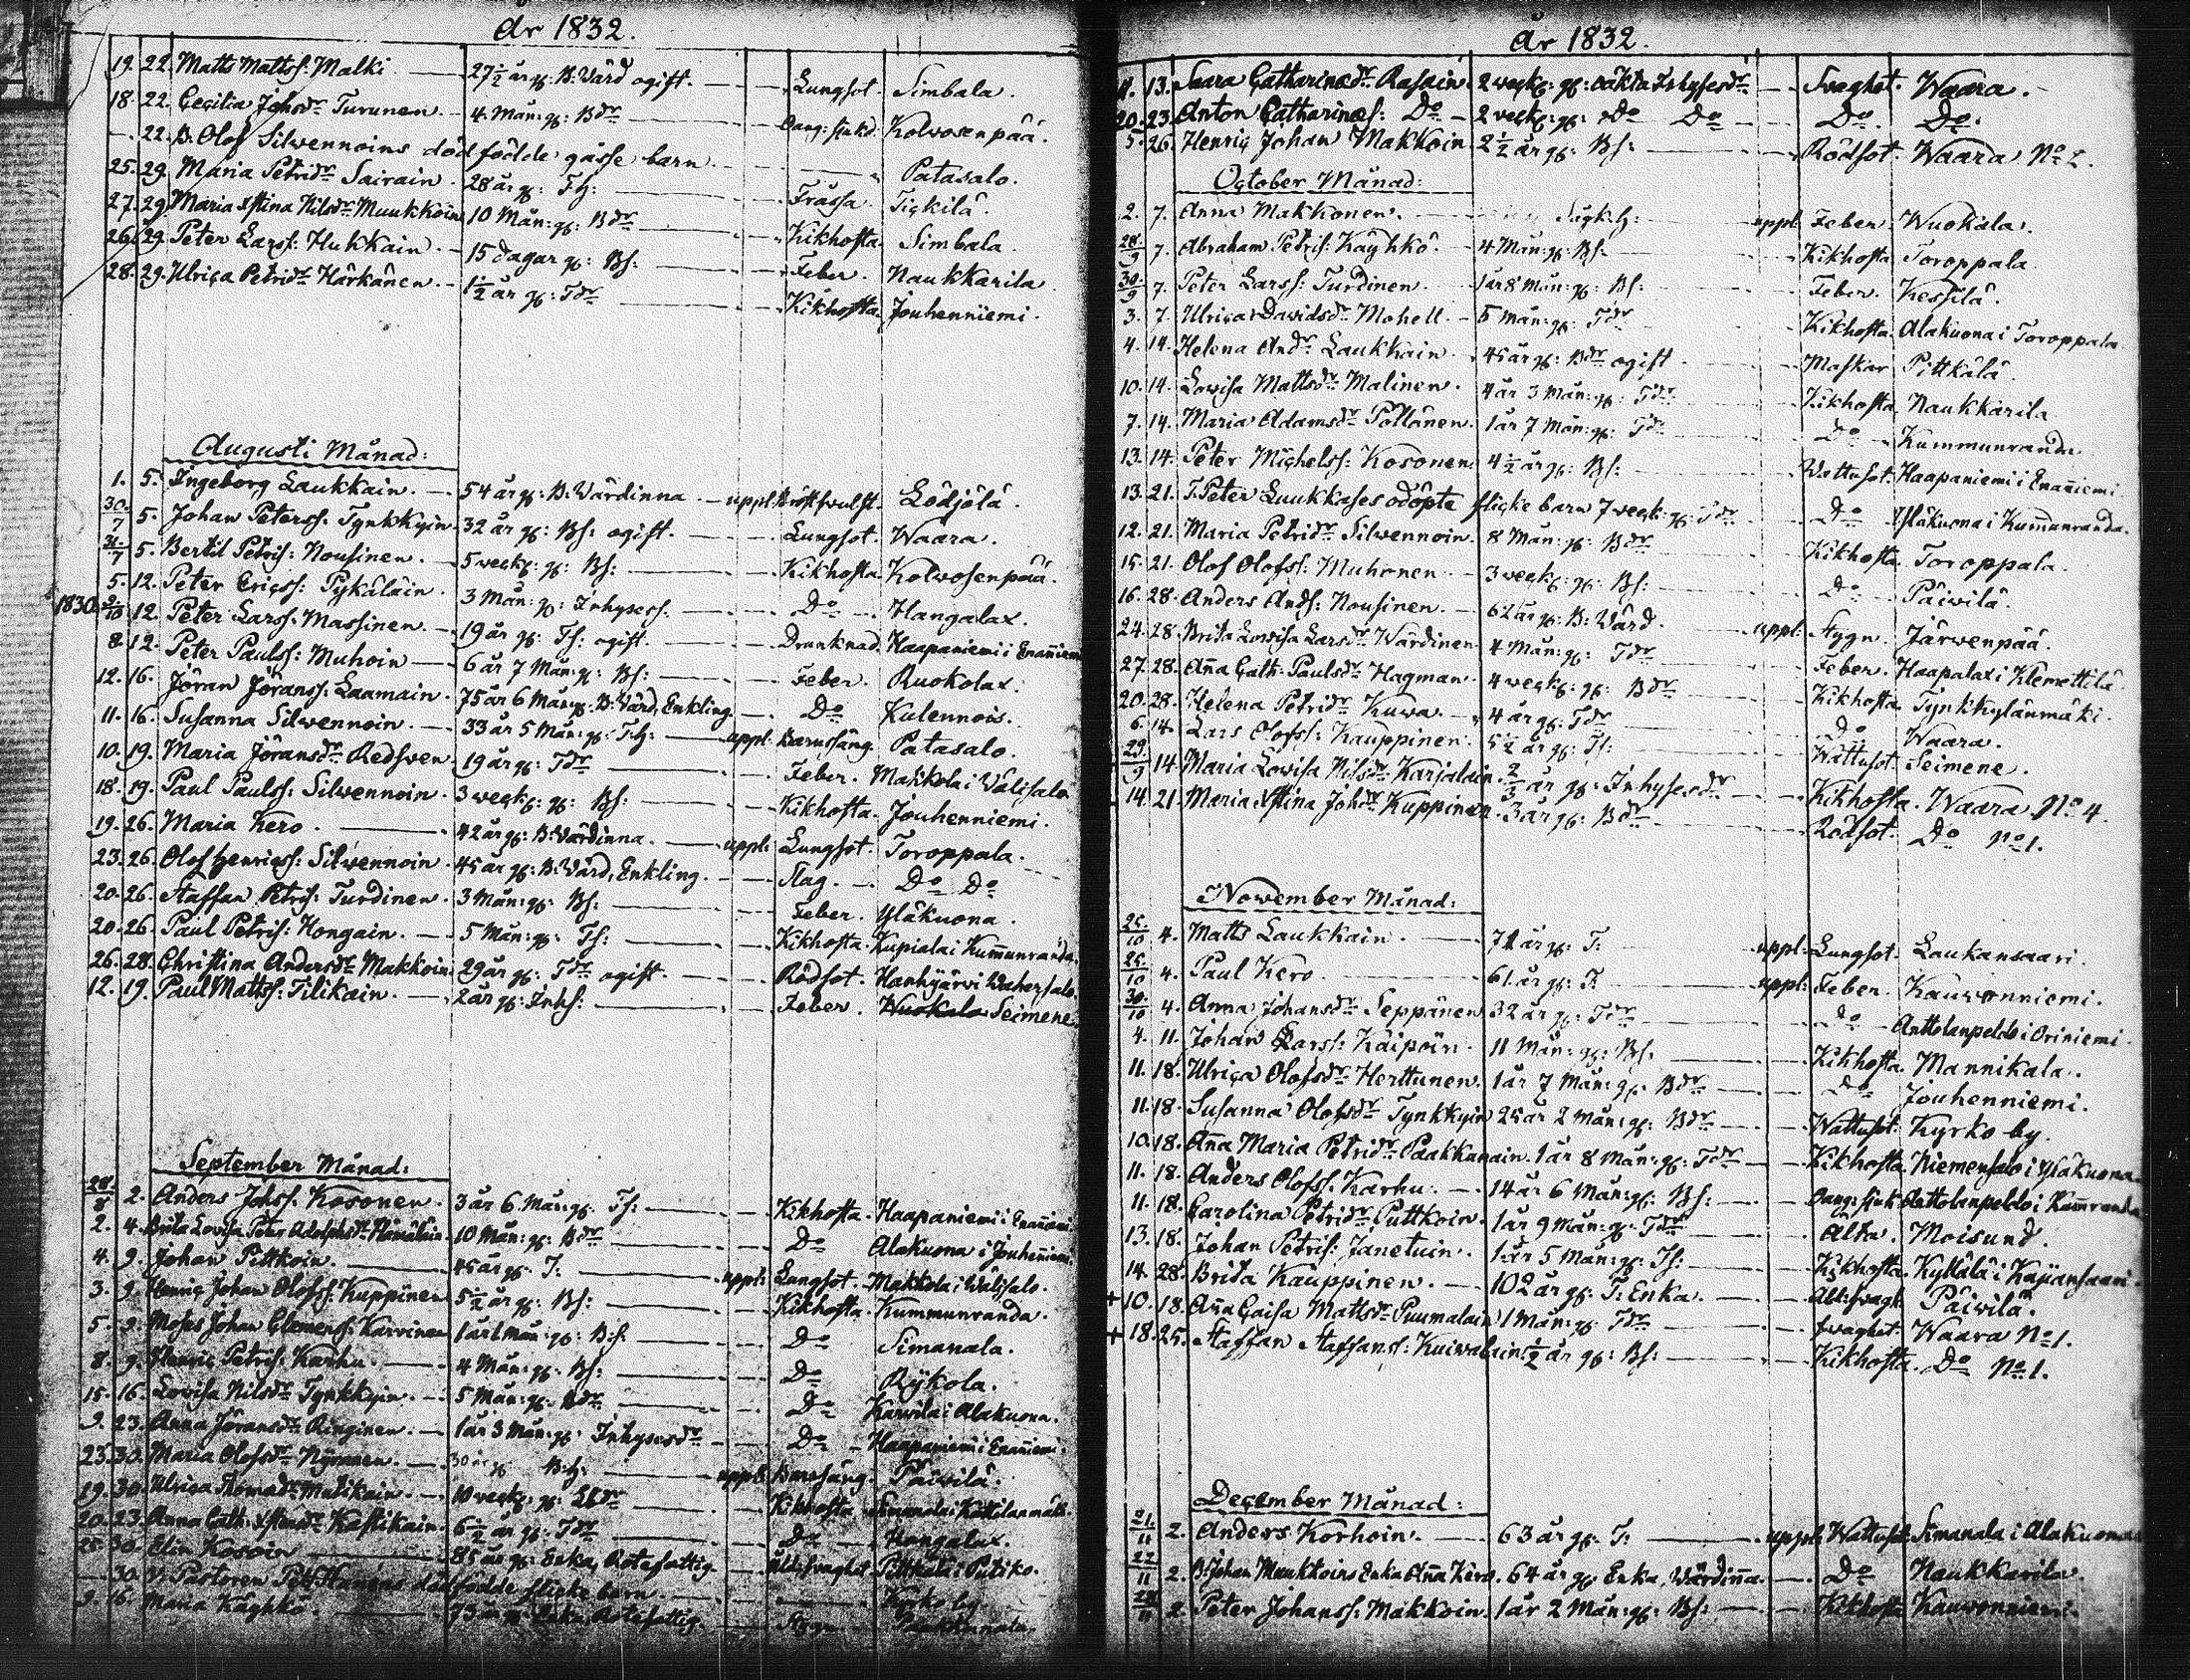 År 1832.
19. 22. Matts Mattss: Malki 27½ år g: B. Värd ogift. Lungsot. Simbala.
18. 22. Cecilia Johsdr Turunen 4 Mån: g: Bdr Kolwosenpää.
22. B. Olof Silwennoins död födde gåsse barn Patasalo.
25. 29. Maria Petridr Sairain 28 år g: TH: Frässa Tickilä.
27. 29. Maria Xstina Nilsdr Muukkoin 10 Mån: g: Bdr Kikhosta Simbala.
26. 29. Peter Larss: Hukkain 15 dagar g: Bs: Feber. Naukkarila
28. 29. Ulrica Petridr Härkänen 1½ år g: Tdr Kikhosta. Jouhenniemi.
Augusti Månad:
1. 5. Ingeborg Laukkain. 54 år g: B. Värdinna uppl. Lödjölä.
30/7 5. Johan Peterss. Tynkkyin. 32 år g: Bs: ogift. Lungsot. Waara.
31/7 5. Bertil Petris: Nousinen. 5 weck: g: Bs: Kikhosta. Kolwosenpää.
5. 12. Peter Ericss: Pykäläin. 3 Mån: g: Inhyses. Do Hangalax.
1830. 9/10 12. Peter Larss. Massinen. 19 år g: Ts: ogift. Drunknad. Haapaniemi i Enanniemi
8. 12. Peter Paulss: Muhoin 6 år 7 Mån: g: Bs: Feber. Ruokolax.
12. 16. Jöran Jöranss: Laamain. 75 år 6 Mån: g: B. Värd, Enkling. Do Kulennois.
11. 16. Susanna Silwennoin. 33 år 5 Mån: g: T.H: uppl. Barnsäng. Patasalo.
10. 19. Maria Jöransdr Redsven 19 år g: Tdr Feber. Makkola i Välisalo
18. 19. Paul Paulss: Silwennoin. 3 weck: g: Bs: Kikhosta. Jouhenniemi.
19. 26. Maria Kero. 42 år g: B. Värdinna. uppl: Lungsot. Toroppala.
23. 26. Olof Henricss: Silwennoin. 45 år g: B. Värd, Enkling. Slag. Do Do
20. 26. Staffan Petris: Turdinen. 3 Mån: g: Bs: Feber. Yläkuona.
20. 26. Paul Petris: Hongain. 5 Mån: g: Ts: Kikhosta. Kupiala i Kummunranda.
26. 28. Christina Andersdr Makkoin 29 år g: Tdr ogift. Rödsot. Hanhijärvi Wahersalo.
12. 19. Paul Mattss: Tilikain. 2 år g: Inhs: Feber. Wuokala Seimene
September Månad:
28/8 2. Anders Johss. Kosonen. 3 år 6 Mån: g: Ts: Kikhosta. Haapaniemi i Enanniemi
2. 4. Brita Lovisa Peter Adolphsdr 10 Mån: g: Bdr Do Alakuona i Jouhenniemi
4. 9. Johan Pittkoin. 45 år g: T: uppl: Lungsot. Makkola i Wälisalo.
3. 9. Henric Johan Olofss: Kuppinen 5½ år g: Bs: Kikhosta. Kummunranda.
5. 9. Moses Johan Clemenss: Karvinen 1 år 1 Mån: g: Bs: Do Simanala.
8. 9. Henric Petris: Karhu. 4 Mån: g: Bs: Do Rykola.
15. 16. Lovisa Nilsdr Tynkkyin. 5 Mån: g: Bdr Do Karvila i Alakuona.
9. 23. Anna Jöransdr Ringinen. 1 år 3 Mån: g: Inhysesdr Do Haapaniemi i Enanniemi.
23. 30. Maria Olofsdr Nymanen. 30 år g: BH: uppl: Barnsäng. Päiwilä.
19. 30. Ulrica Thomasdr Mutikain. 10 weck: g: Kikhosta Simanala Kattilanmäki.
20. 23. Anna Cath: Xstersdr Kostikain. 6½ år g: Tdr Do Hangalax.
25. 30. Elin Kosoin 85 år g: Enka, Rotefattig. Ålders svaghet. Pittkälä i Putiko.
30. V. Pastoren Pet. Hanéns död födde flicke barn. Kyrko by.
9. 16. Maria Käyhkö. 73 år g: Enka, Rotefattig. Stygn Paakkunala.
År 1832.
11. 13. Saara Catharinædr Rasain 2 weck: g: oäkta Inhysesdr Svaghet. Waara.
20. 23. Anton Catharinæs: Do 2 weck: g: Do Do Do. Do.
5. 26. Henric Johan Makkoin. 2½ år g: Bs: Rödsot. Waara No 2.
October Månad:
2. 7. Anna Makkonen. uppl. Feber. Wuokala.
28/9 7. Abraham Petris: Käyhkö. 4 Mån: g: Bs: Kikhosta Toroppala.
30/9 7. Peter Larss: Turdinen. 1 år 8 Mån: g: Bs: Feber. Kessilä.
3. 7. Ulrica Davidsdr Mohell. 5 Mån: g: Tdr Kikhosta. Alakuona i Toroppala
4. 14. Helena Andr Laukkain. 45 år g: Bdr ogift Maskar Pittkälä.
10. 14. Lovisa Mattsdr Malinen. 4 år 3 Mån: g: Tdr Kikhosta. Naukkarila
7. 14. Maria Adamsdr Pöllänen. 1 år 7 Mån: g: Tdr Do Kummunranda
13. 14. Peter Michelss: Kosonen 4½ år g: Bs: Wattusot. Haapaniemi i Enanniemi
13. 21. T. Peter Luukkases odöpte flicke barn 7 weck: g: Tdr Do Yläkuona i Kummunranda.
12. 21. Maria Petridr Silwennoin. 8 Mån: g: Bdr Kikhosta. Toroppala.
15. 21. Olof Olofss: Muhonen. 3 weck: g: Bs: Do Päiwilä.
16. 28. Anders Ands: Nousinen. 62 år g: B. Värd. uppl: Stygn. Järwenpää.
24. 28. Brita Lovisa Larsdr Wärdinen 4 Mån: g: Tdr Feber. Haapalax i Klemettilä.
27. 28. Anna Cath: Paulsdr Hagman. 4 weck: g: Bdr Kikhosta Tynkkylänmäki.
20. 28. Helena Petridr Kuwa. 4 år g: Tdr Do Waara.
6. 14. Lars Olofss: Kauppinen. 5½ år g: Ts: Wattusot. Seimene.
29/9 14. Maria Lovisa Nilsdr Karjalain. 2/3 år g: Inhysesdr Kikhosta. Waara No 4.
14. 21. Maria Xstina Johdr Kuppinen. 3 år g: Bdr Rödsot. Do No 1.
November Månad:
25/10 4. Matts Laukkain. 72 år g: T: uppl. Lungsot. Laukansaari.
25/10 4. Paul Kero 61 år g: T. uppl: Feber. Kauvonniemi.
30/10 4. Anna Johansdr Seppänen 32 år g: Tdr Do Anttolanpeldo i Oriniemi.
4. 11. Johan Larss: Käipöin. 11 Mån: g: Bs: Kikhosta. Mannikala.
11. 18. Ulrica Olofsdr Herttunen. 1 år 7 Mån: g: Bdr Do Jouhenniemi.
11. 18. Susanna Olofsdr Tynkkyin 25 år 2 Mån: g: Bdr Wattusot. Kyrko by.
10. 18. Anna Maria Petridr Paakkunain. 1 år 8 Mån: g: Tdr Kikhosta. Niemensalo i Yläkuona
11. 18. Anders Olofss. Karhu. 14 år 6 Mån: g: Bs: Anttolanpeldo i Kummranda
11. 18. Carolina Petridr Puttkoin. 1 år 9 Mån: g: Tdr Alta. Moisund.
13. 18. Johan Petris: Janetuin. 1 år 5 Mån: g: Ts: Kikhosta. Kykkälä i Kajansaari.
14. 28. Brita Kauppinen. 102 år g: T: Enka. Päiwilä.
+ 10. 18. Anna Caisa Mattsdr Puumalain 1 Mån: g: Tdr svaghet. Waara No 1.
+ 18. 25. Staffan Staffanss: Kuiwalain: ½ år g: Bs: Kikhosta. Do No 1.
December Månad:
21/11 2. Anders Korhoin. 63 år g: T: uppl. Wattusot Simanala i Alakuona
22/11 2. B. Johan Muukkoins Enka Anna Kero. 64 år g: Enka, Wärdinna. Do Naukkarila.
28/11 2. Peter Johanss: Makkoin. 1 år 2 Mån: g: Bs: Kikhosta Kauvonniemi.